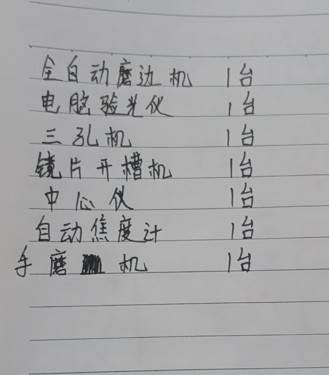 全自动磨边机 1台
电脑验光仪 1台
三孔机 1台
镜片开槽机 1台
中心仪 1台
自动焦度计 1台
手磨机 1台